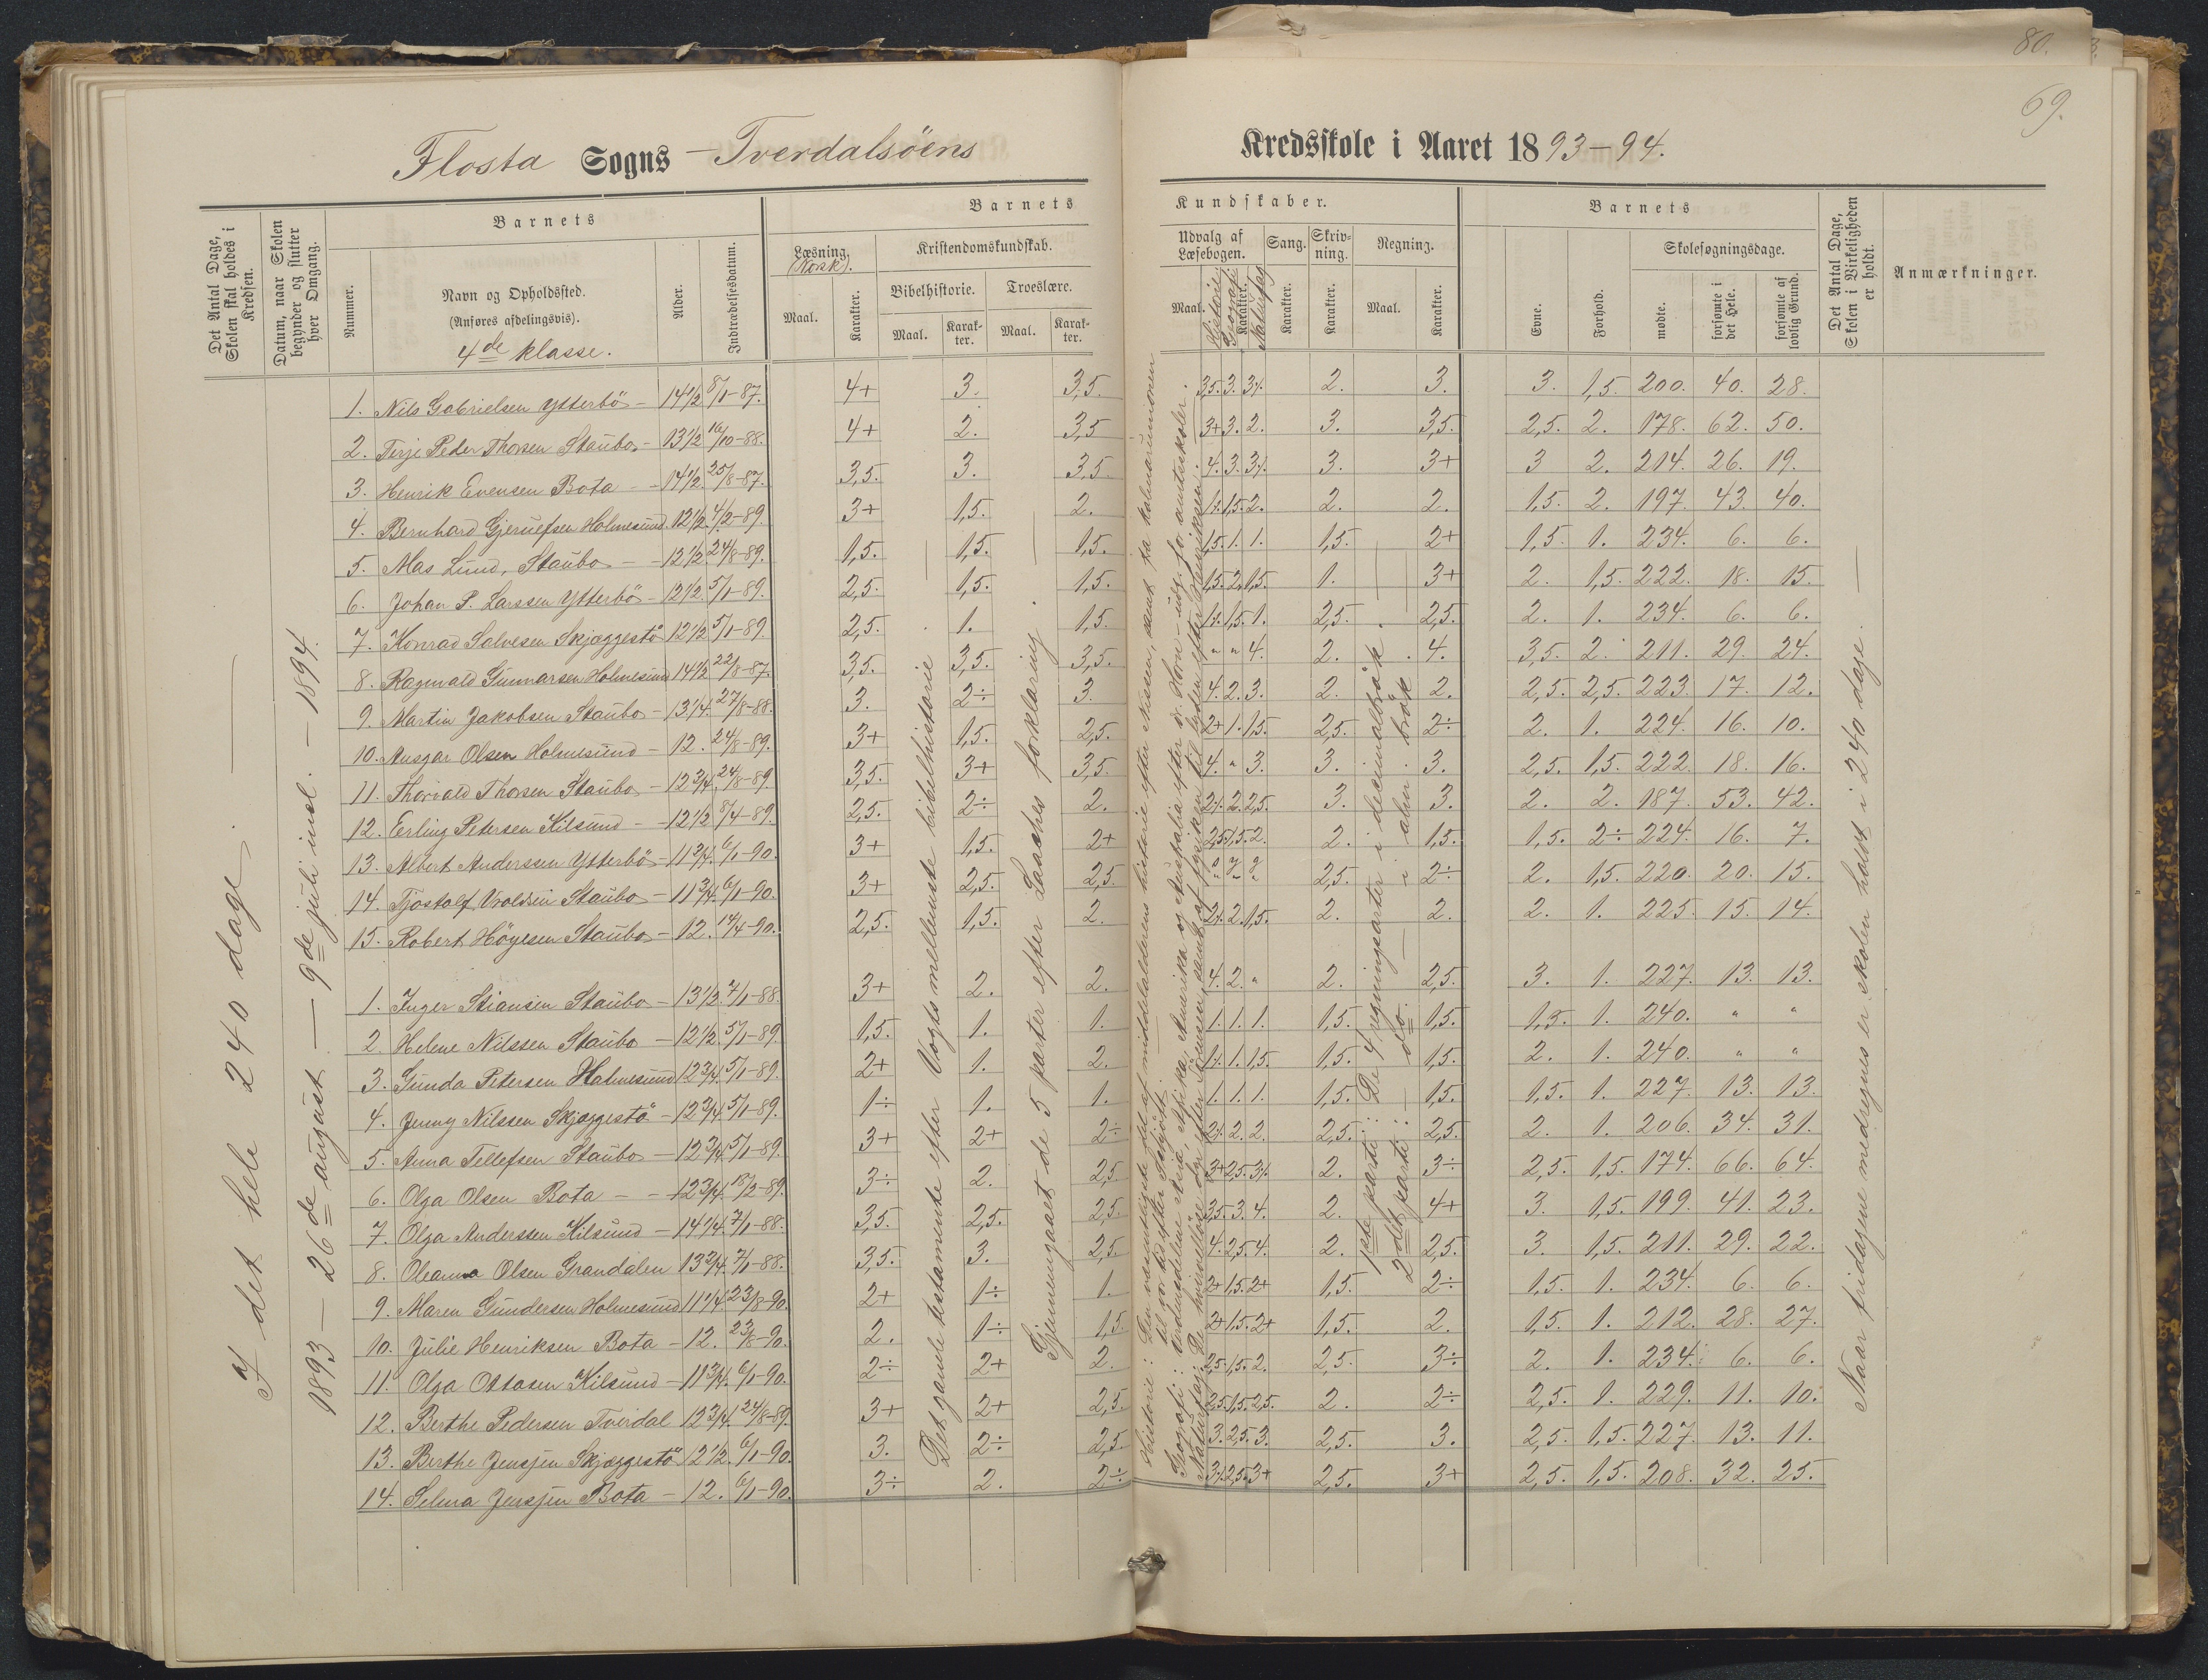 80.
69.
Flosta Sogns – Tverdalsöens Kredsskole i Aaret 1893–94.
Det Antal Dage, Skolen skal holdes i Kredsen.
Datum, naar Skolen begynder og slutter hver Omgang.
Barnets
Nummer.
Navn og Opholdssted.
(Anføres afdelingsvis).
4de klasse.
Alder.
Indtrædelsesdatum.
Barnets Kundskaber.
Læsning. (Norsk).
Maal.
Karakter.
Kristendomskundskab.
Bibelhistorie.
Maal.
Karakter.
Troeslære.
Maal.
Karakter.
Udvalg af Læsebogen.
Maal.
Historie
Geografi
Karakter.
Naturfag
Sang.
Karakter.
Skrivning.
Karakter.
Regning.
Maal.
Karakter.
Barnets
Evne.
Forhold.
Skolesøgningsdage.
mødte.
forsømte i det Hele.
forsømte af lovlig Grund.
Det Antal Dage, Skolen i Virkeligheden er holdt.
Anmærkninger.
I det hele 240 dage.
1893 – 26de august – 9de juli incl. – 1894.
1. Nils Gabrielsen Ytterbö – 14 1/2 8/1–87. 4+ 3. 3,5. 3,5. 3. 3⁒. 2. 3. 3. 1,5. 200. 40. 28.
2. Terje Peder Thorsen Staubo – 13 1/2 16/10–88. 4+ 2. 3,5 3+ 3. 2. 3. 3,5. 2,5. 2. 178. 62. 50.
3. Henrik Evensen Bota – 14 1/2. 25/8–87. 3,5. 3. 3,5 4. 3. 3⁒. 3. 3+ 3 2. 214. 26. 19.
4. Bernhard Gjerulfsen Holmesund. 12 1/2. 4/2–89. 3+ 1,5. 2. 1⁒. 1,5. 2. 2. 2. 1,5. 2. 197. 43. 40.
5. Mas Lund, Staubo – 12 1/2. 24/8–89. 1,5. 1,5. 1,5. 1,5. 1. 1. 1,5. 2+ 1,5. 1. 234. 6. 6.
6. Johan P. Larssen Ytterbö – 12 1/2. 5/1–89. 2,5. 1,5. 1,5. 1,5. 2. 1,5. 1. 3+ 2. 1,5. 222. 18. 15.
7. Konrad Salvesen Skjæggestö 12 1/2 5/1–89. 2,5. 1. 1,5. 1⁒. 1,5. 1. 2,5. 2,5. 2. 1. 234. 6. 6.
8. Ragnvald Gunnarsen Holmesund 14 1/2 22/8–87. 3,5. 3,5. 3,5. " " 4. 2. 4. 3,5. 2. 211. 29. 24.
9. Martin Jakobsen Staubo – 13 1/4. 27/8–88. 3. 2÷ 3. 4. 2. 3. 2. 2. 2,5. 2,5. 223. 17. 12.
10. Ansgar Olsen Holmesund – 12. 24/8–89. 3+ 1,5. 2,5. 2+ 1. 1,5. 2,5. 2÷ 2. 1. 224. 16. 10.
11. Thorvald Thorsen Staubo – 12 3/4. 24/8–89. 3,5. 3+ 3,5. 4. " 3. 3. 3. 2,5. 1,5. 222. 18. 16.
12. Erling Petersen Kilsund – 12 1/2 8/4–89. 2,5. 2÷ 2. 2⁒. 2. 2,5. 3. 3. 2. 2. 187. 53. 42.
13. Albert Anderssen Ytterbö – 11 3/4. 6/1–90. 3+ 1,5. 2+ 2,5. 1,5. 2. 2. 1,5. 1,5. 2÷ 224. 16. 7.
14. Tjöstolf Vroldsen Staubo – 11 3/4. 6/1–90. 3+ 2,5. 2,5. 2,5. 2÷ 2. 1,5. 220. 20. 15.
15. Robert Höyesen Staubo – 12. 14/4–90. 2,5. 1,5. 2. 2⁒. 2. 1,5. 2. 2. 2. 1. 225. 15. 14.
1. Inger Stiansen Staubo – 13 1/2. 7/1–88. 3+ 2. 2. 4. 2. " 2. 2,5. 3. 1. 227. 13. 13.
2. Helene Nilssen Staubo – 12 1/2. 5/1–89. 1,5. 1. 1. 1. 1. 1. 1,5. 1,5. 1,5. 1. 240. " "
3. Gunda Petersen Holmesund 12 3/4. 5/1–89. 2+ 1. 2. 1⁒. 1. 1,5. 1,5. 1,5. 2. 1. 240. " "
4. Jenny Nilssen Skjæggestö – 12 3/4 5/1–89. 1÷ 1. 1. 1. 1. 1. 1,5. 1,5. 1,5. 1. 227. 13. 13.
5. Anna Tellefsen Staubo – 12 3/4. 5/1–89. 3+ 2+ 2÷ 2⁒. 2. 2. 2,5. 2,5. 2. 1. 206. 34. 31.
6. Olga Olsen Bota – 12 3/4. 18/2–89. 3÷ 2. 2,5 3+ 2,5. 3⁒. 2. 3÷ 2,5. 1,5. 174. 66. 64.
7. Olga Anderssen Kilsund – 14 1/4. 7/1–88. 3,5. 2,5. 2,5. 3,5. 3. 4. 2. 4+ 3. 1,5. 199. 41. 23.
8. Oleanna Olsen Grandalen 13 3/4. 7/1–88. 3,5. 3. 2,5 4. 2,5 4. 2. 2,5. 3. 1,5. 211. 29. 22.
9. Maren Gundersen Holmesund 11 1/4 23/8–90. 2+ 1÷ 1. 2+ 1,5. 2+ 1,5. 2÷ 1,5. 1. 234. 6. 6.
10. Julie Henriksen Bota – 12. 23/8–90. 2. 1÷ 1,5. 2+ 1,5. 2+ 1,5. 2. 1,5. 1. 212. 28. 27.
11. Olga Ottosen Kilsund – 11 3/4. 6/1–90. 2÷ 2+ 2. 2,5. 1,5. 2. 2,5. 3÷ 2. 1. 234. 6. 6.
12. Berthe Pedersen Tverdal 12 3/4. 24/8–89. 3+ 2+ 2,5. 2,5. 1,5. 2,5. 2. 2÷ 2,5. 1. 229. 11. 10.
13. Berthe Jensjen Skjæggestö 12 1/2. 6/1–90. 3. 2÷ 2,5. 3. 2,5. 3. 2,5. 3. 2,5. 1,5. 227. 13. 11.
14. Selma Jensjen Bota – 12. 6/1–90. 3÷ 2. 2÷ 3⁒. 2,5. 3+ 2,5. 3+ 2,5. 1,5. 208. 32. 25.
Det gamle testamente efter Vogts mellemste bibelhistorie
Gjennemgaaet de 5 parter efter Laaches forklaring.
Historie: Den væsentligste del af middelalderens historie efter Nissen, samt fra kalmarunionen til vor tid efter
Geografi: Verdensdelene Asia, Afrika, Amerika og Australia efter dr. Horn – udg. for amtsskoler.
Naturfag: De hvirvelløse dyr efter Sörensen, samt af fysiken til lyden efter Henriksen.
1ste parti: De 4 regningsarter i decimalbrøk
2det parti: – do. – i alm brøk
Naar fridagene medregnes er skolen holdt i 240 dage. –